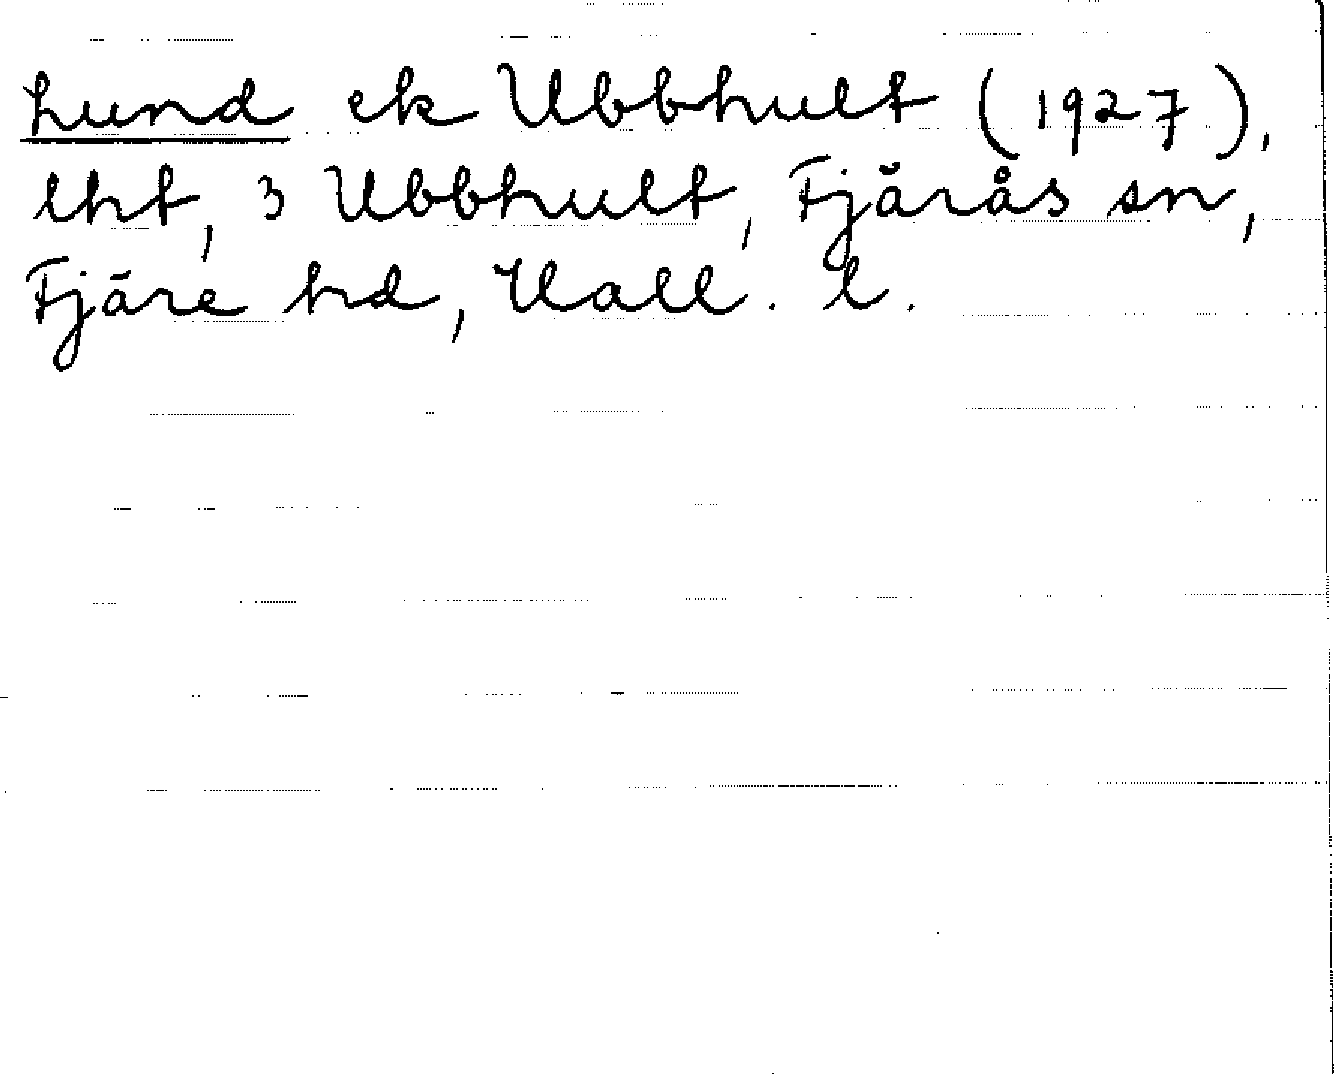 lund ek Ubbhult (1927),
lht, 3 Ubbhult, Fjärås sn,
Fjäre hd, Hall. l.